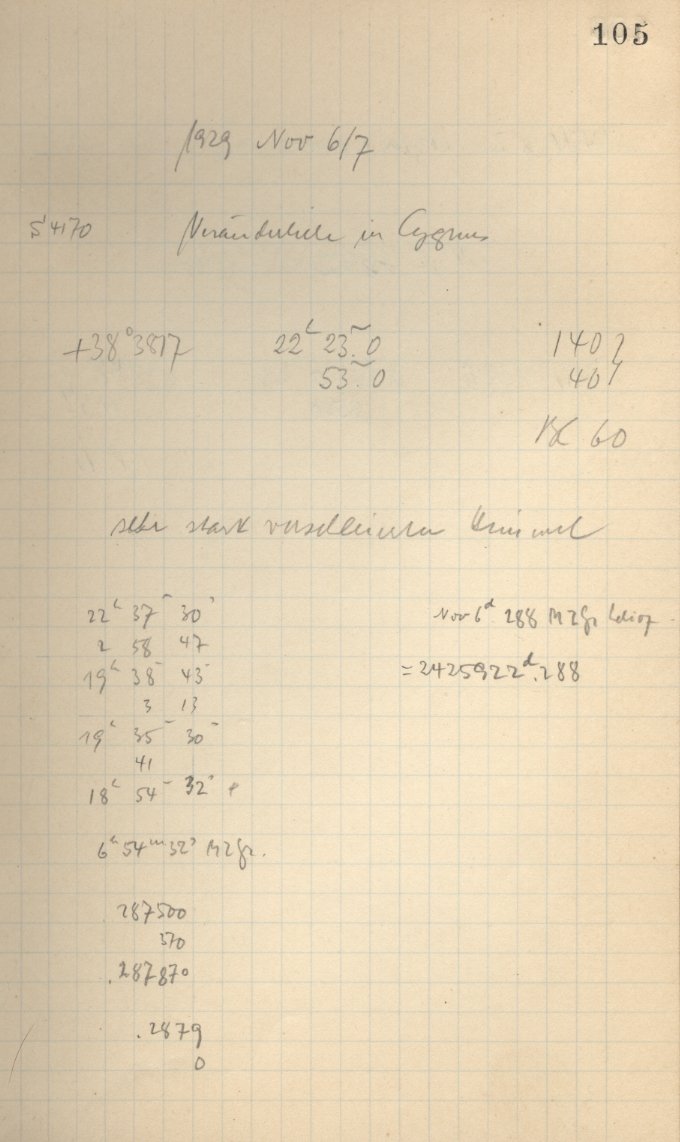 105
1929 Nov 6/7
S 4170 Veränderliche in Cygnus
+38°3817 22h 23m.0 140
53m.0 40
60
sehr stark verschleierter Himmel
22h 37m 30s
2 58 47
19h 38m 43s
3 13
19h 35m 30s
41
18h 54m 32s
6h 54m 32s MZGr.
.287500
370
.287870
.2879
0
Nov 6d 288 MZGr helioz
=2425922d.288